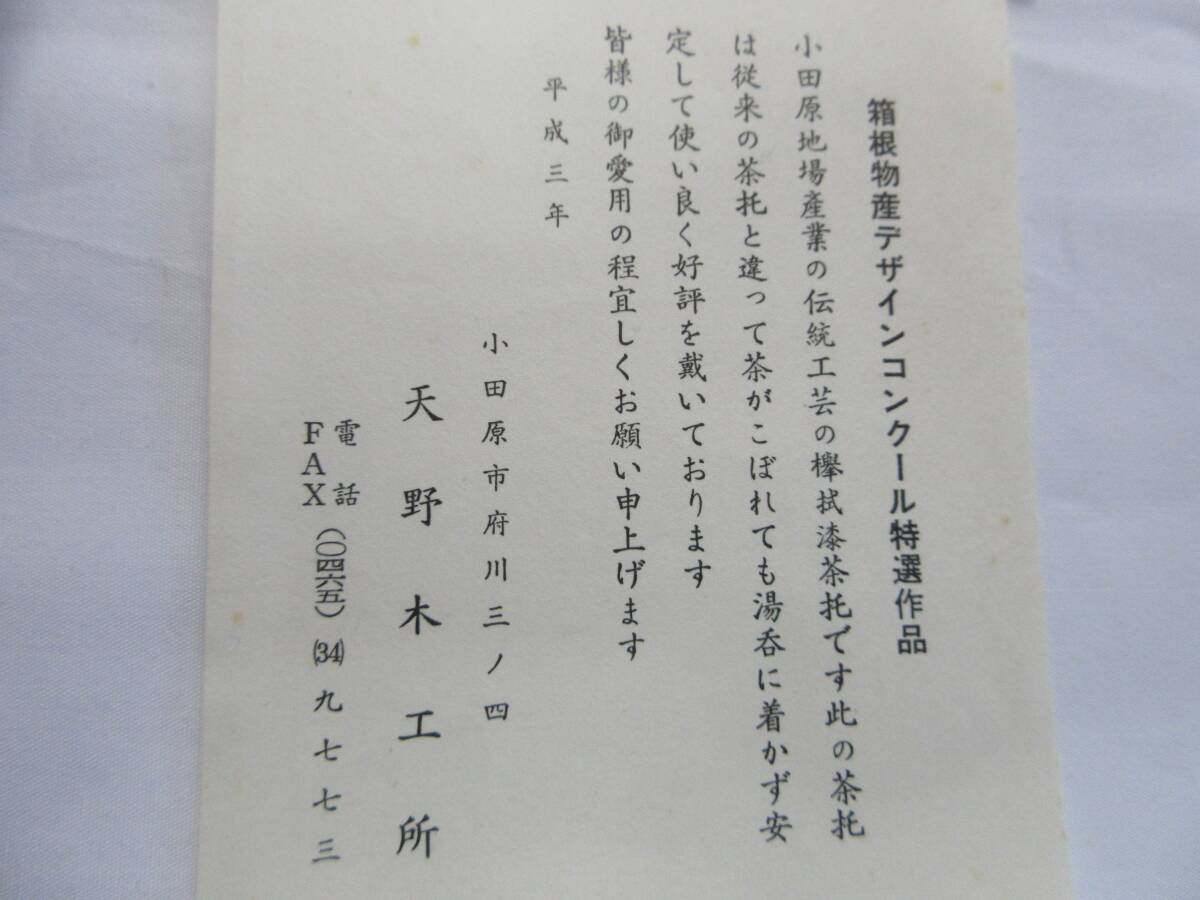 箱根物産デザインコンクール特選作品
小田原地場産業の伝統工芸の欅拭漆茶托です此の茶托
は従来の茶托と違って茶がこぼれても湯呑に着かず安
定して使い良く好評を戴いております
皆様の御愛用の程宜しくお願い申上げます
平成三年
小田原市府川三ノ四
天野木工所
電話
FAX
(〇四六五)(34)九七七三